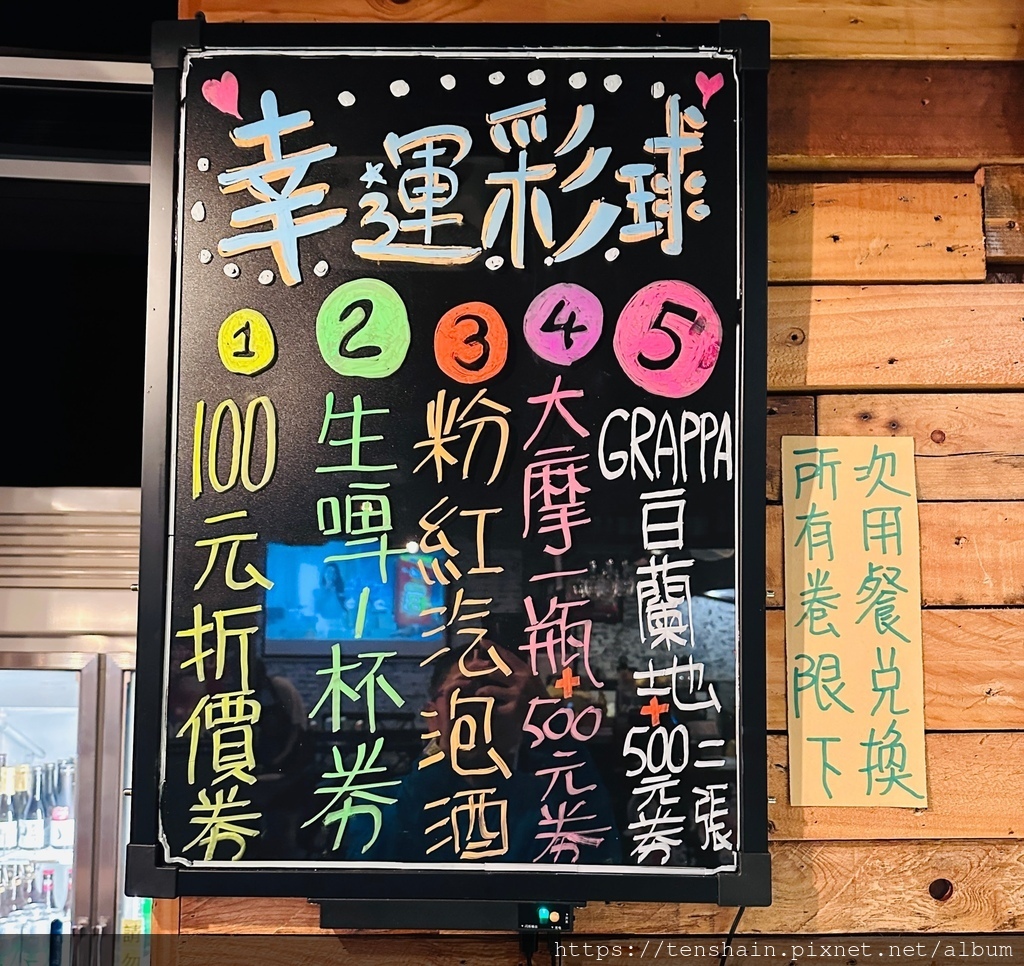 幸運彩球
1
100元折價券
2
生啤1杯券
3
粉紅汽泡酒
4
大摩一瓶+500元券
5
GRAPPA
白蘭地+500元券二張
所有卷限下
次用餐兌換
請勿
https://tenshain.pixnet.net/album